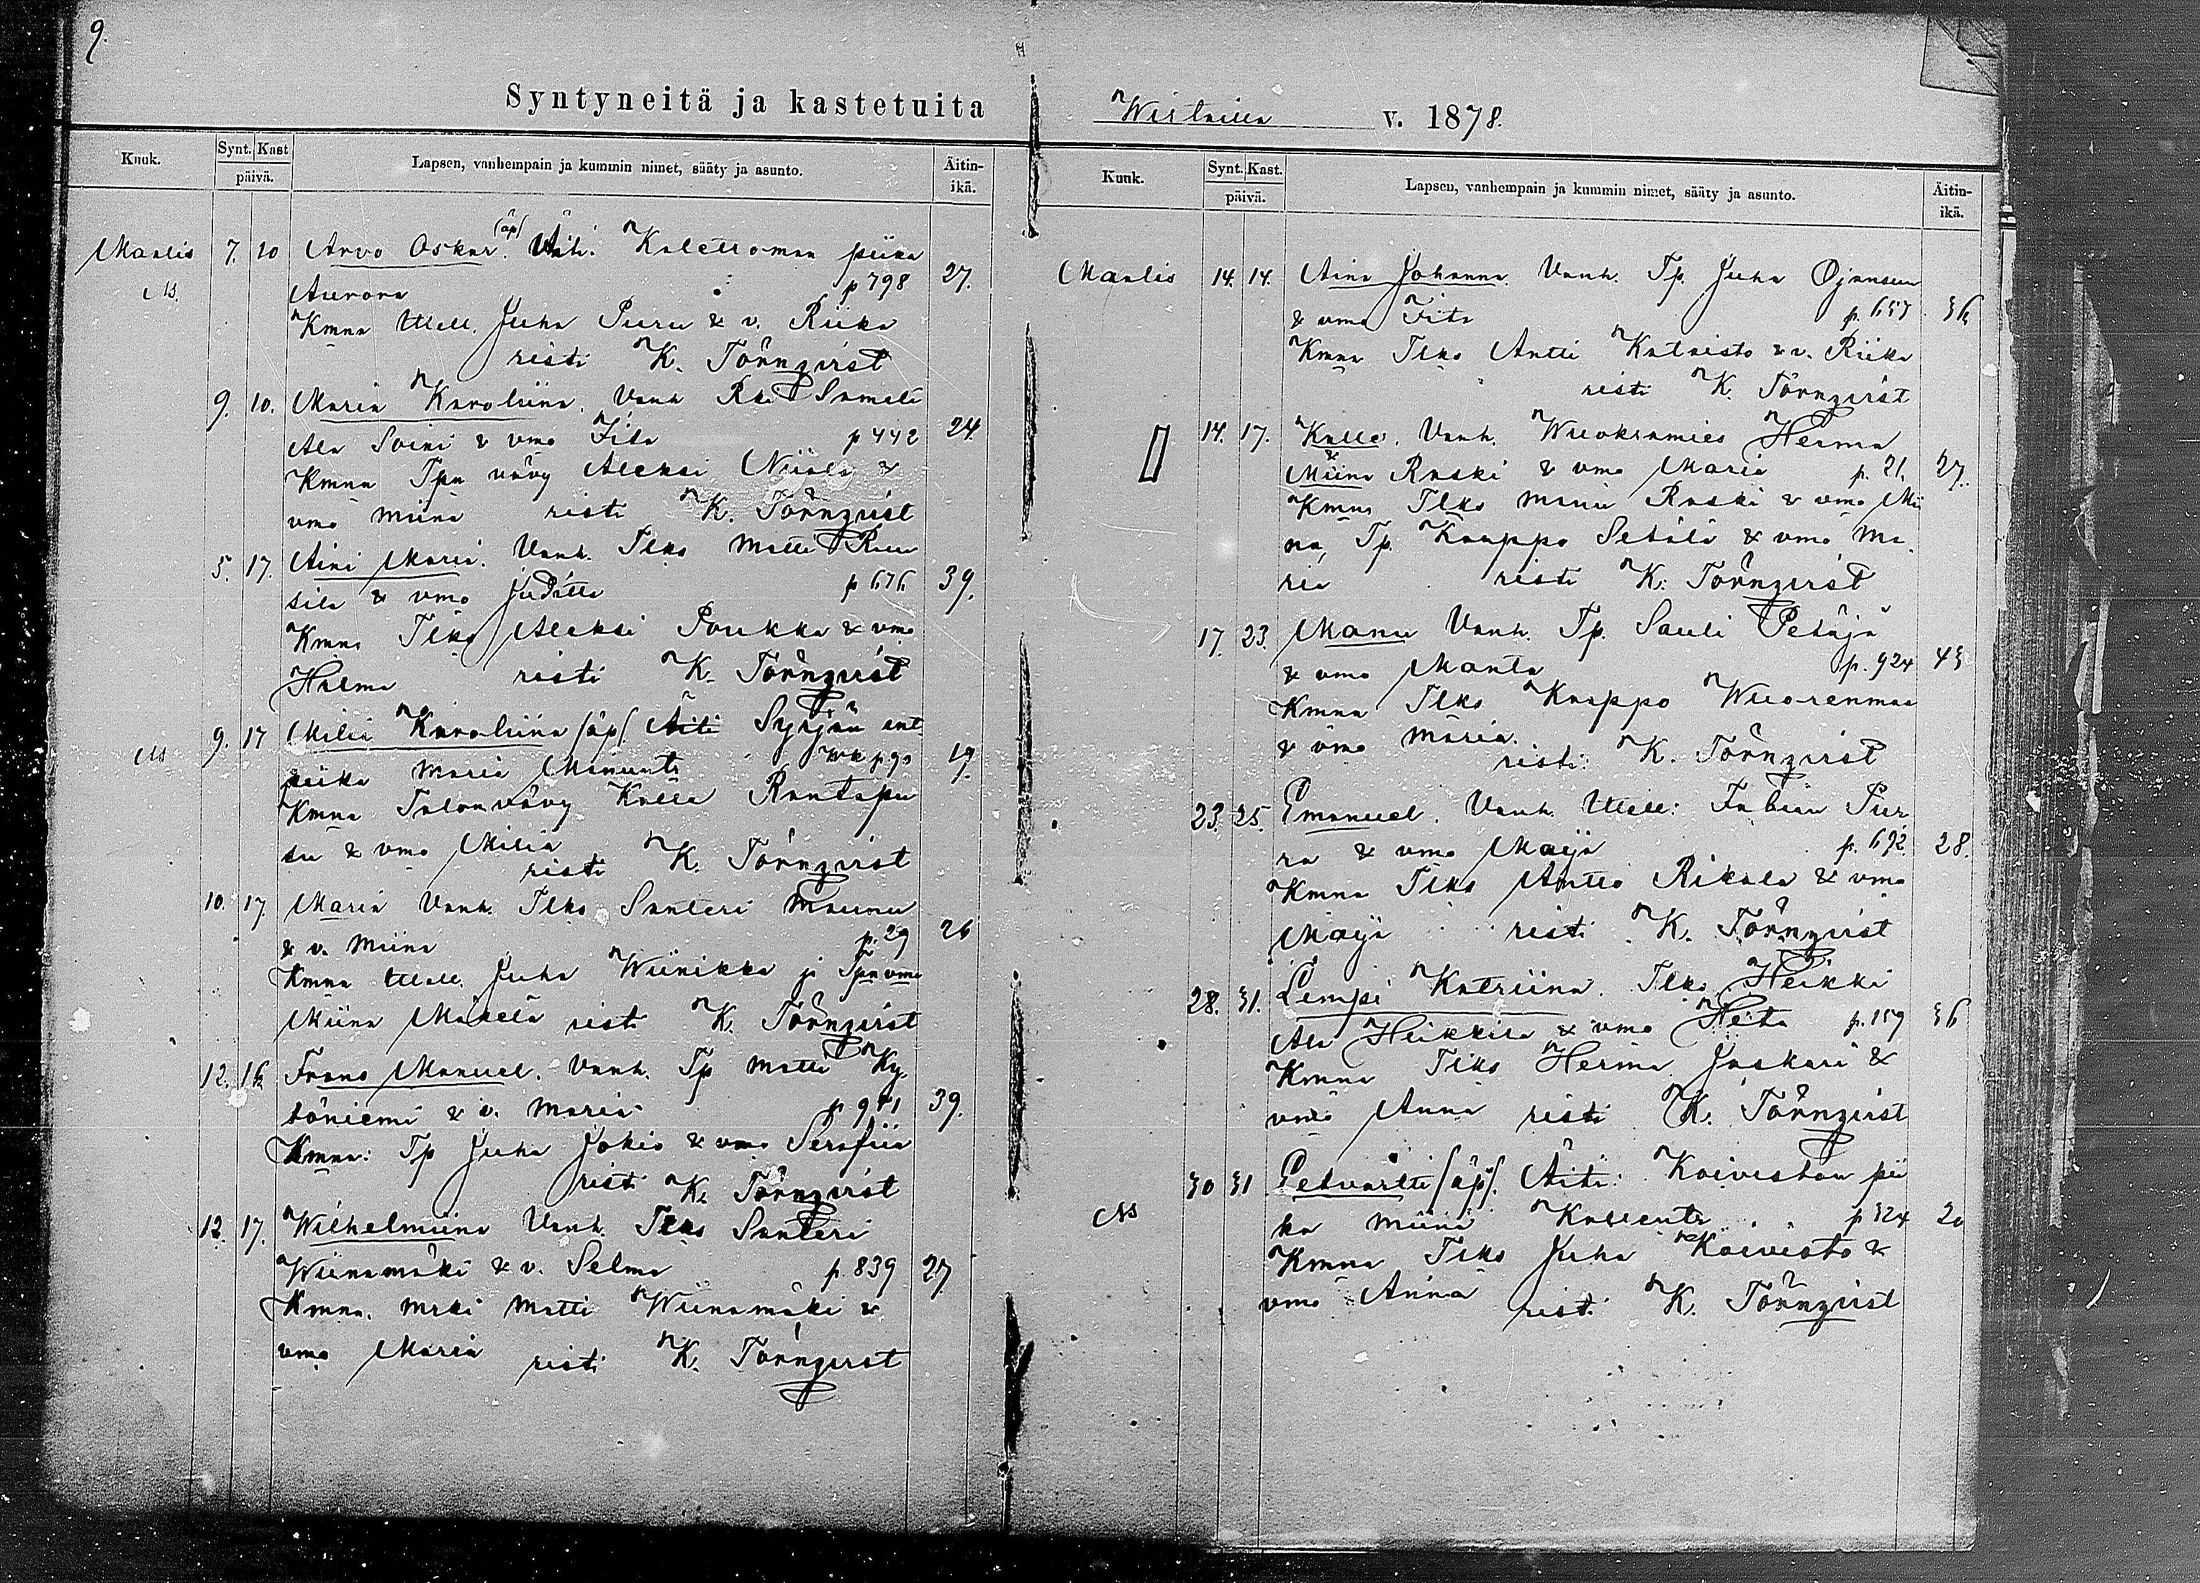 9.
Syntyneitä ja kastetuita
Kuuk.
Synt. Kast
päivä.
Lapsen, vanhempain ja kummin nimet, sääty ja asunto.
Äitin-
ikä.
Maalis 7. 10 Arvo Oskar (äp) Äiti: piika
Aurora p 798 27.
Kmna Mell. Juha Puru & v. Riika
risti K. Törnqvist
9. 10. Maria Karoliina. Vanh Sameli
Ala Soini & vmo Fiia p 442 24.
Kmna Tpn vävy Aleksi Niialo &
vmo Miina risti K. Törnqvist
5. 17. Aini Maria. Vanh. Tlks Matti Ruu
sila & vmo Juditta p 676 39.
Kmna Tlks Aleksi Poukka & vmo
Hilma risti K. Törnqvist
9. 17 Milia Karoliina /äp/ Äiti
piika Maria p 90 19
Kmna Talonvävy Kalle Rantapu
su & vmo Milia
risti K. Törnqvist
10. 17. Maria Vanh. Tlks Santeri Maunu
& v. Miina p. 29 26
Kmna Mell. Juha Wiinikka ja Tpn vmo
Miina Mäkelä risti K. Törnqvist
12. 16 Frans Manuel. Vanh. Tp Matti Ky
töniemi & v. Maria p 941 39.
Kmna: Tp Juha Jokio & vmo Serafiia
risti K. Törnqvist
12. 17. Wilhelmiina Vanh. Tlks Santeri
Wiinamäki & v. Selma p. 839 27.
Kmna. Mrki Matti Wiinamäki &
vmo Maria risti K. Törnqvist
v. 1878.
Kuuk.
Synt. Kast.
päivä.
Lapsen, vanhempain ja kummin nimet, sääty ja asunto.
Äitin-
ikä.
Maalis 14. 14. Aina Johanna. Vanh. Tp. Juha Ojansuu
& vmo Fiia p. 657 36
Kmna Tlks Antti Kataisto & v. Riika
risti K. Törnqvist
14. 17. Kalle. Vanh. Wuokramies Herma
&
Miina Raski & vmo Maria p. 21. 27.
Kmna Tlks Manu Raski & vmo Mii
na, Tp. Kaappo Setälä & vmo Ma
ria risti K. Törnqvist
17. 23. Manu Vanh. Tp. Sauli Petäjä
& vmo Manta p. 924 43
Kmna Tlks Kaappo Wuorenmaa
& vmo Maria.
risti: K. Törnqvist
23. 25. Emanuel. Vanh. Mell: Fabian Pur
ra & vmo Maija p. 692 28.
Kmna Tlks Antto Rikala & vmo
Maija risti K. Törnqvist
28. 31. Lempi Katriina. Tlks Heikki
Ala Heikkila & vmo Heta p. 159 36
Kmna Tlks Herma Jaskari &
vmo Anna risti K. Törnqvist
30 31 Petvartti /äp/. Äiti: Koivistan pii
ka Miina p 324 20
Kmna Tlks Juha Koivisto &
vmo Anna risti K. Törnqvist